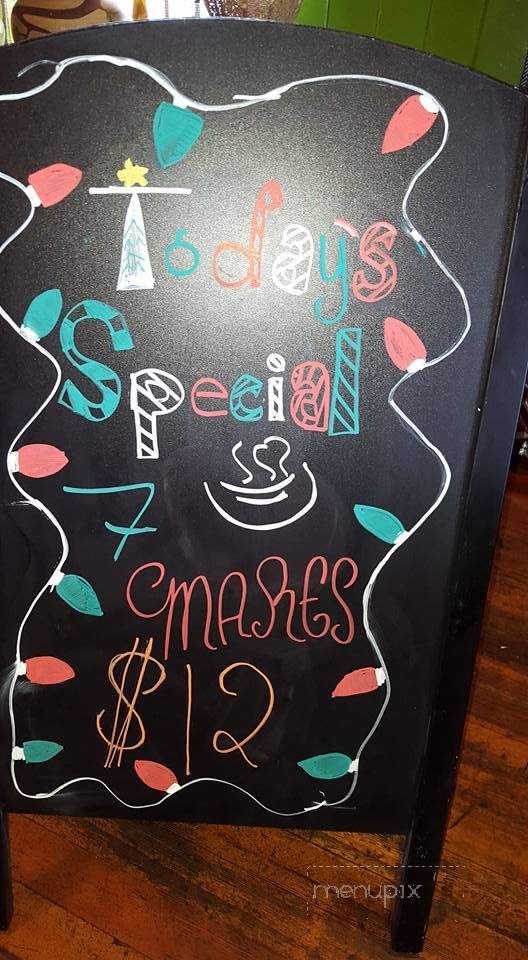 Today's
Special
7
MARES
$12
menupix